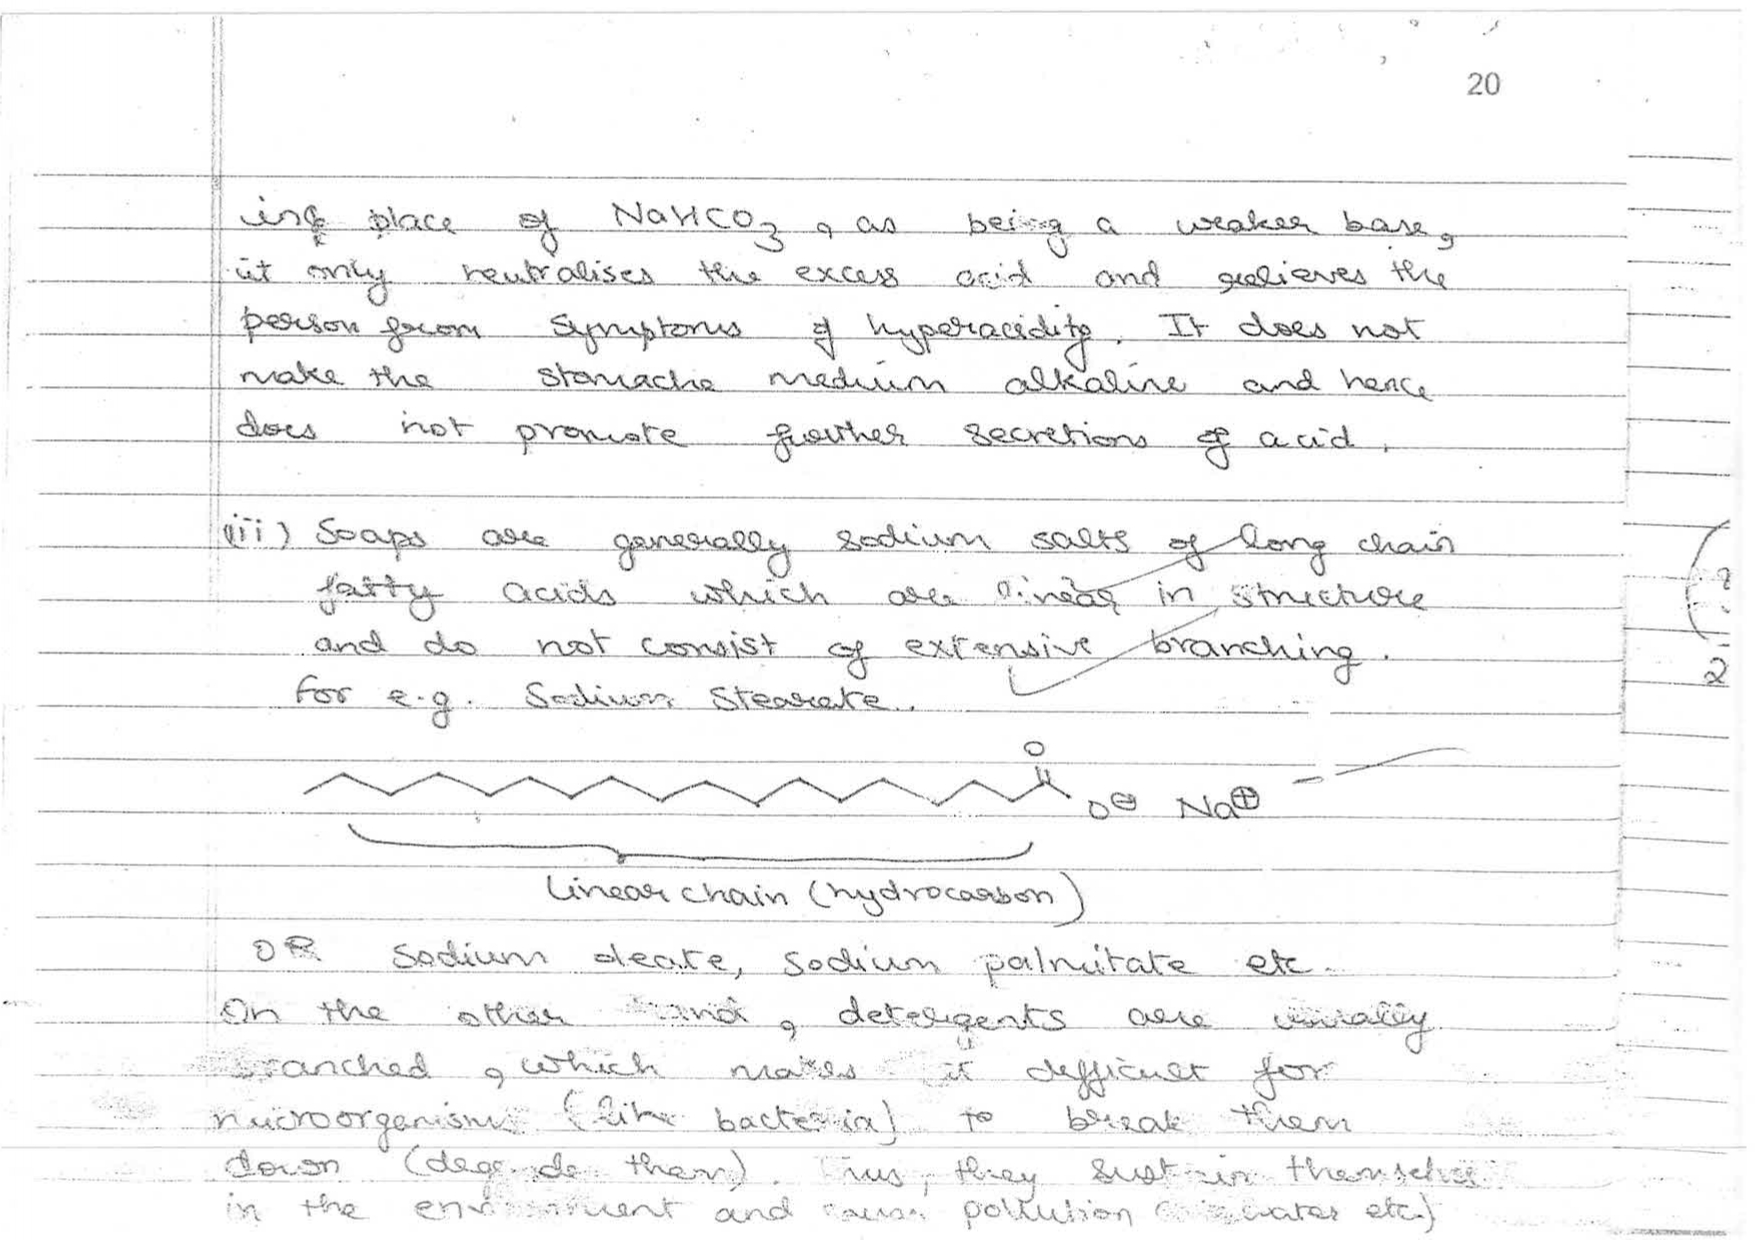 20
in place of NaHCO3, as being a weaker base,
it only neutralises the excess acid and relieves the
person from symptoms of hyperacidity. It does not
make the stomache medium alkaline and hence
does not promote further secretions of acid.
(iii) Soaps are generally sodium salts of long chain
fatty acids which are linear in structure
and do not consist of extensive branching.
For e.g. Sodium Stearate.
O
O⊖ Na⊕
Linear chain (hydrocarbon)
OR Sodium oleate, sodium palmitate etc.
On the other hand, detergents are usually
branched, which makes it difficult for
microorganisms (like bacteria) to break them
down (degrade them). Thus, they sustain themselves
in the environment and cause pollution water etc.)
2